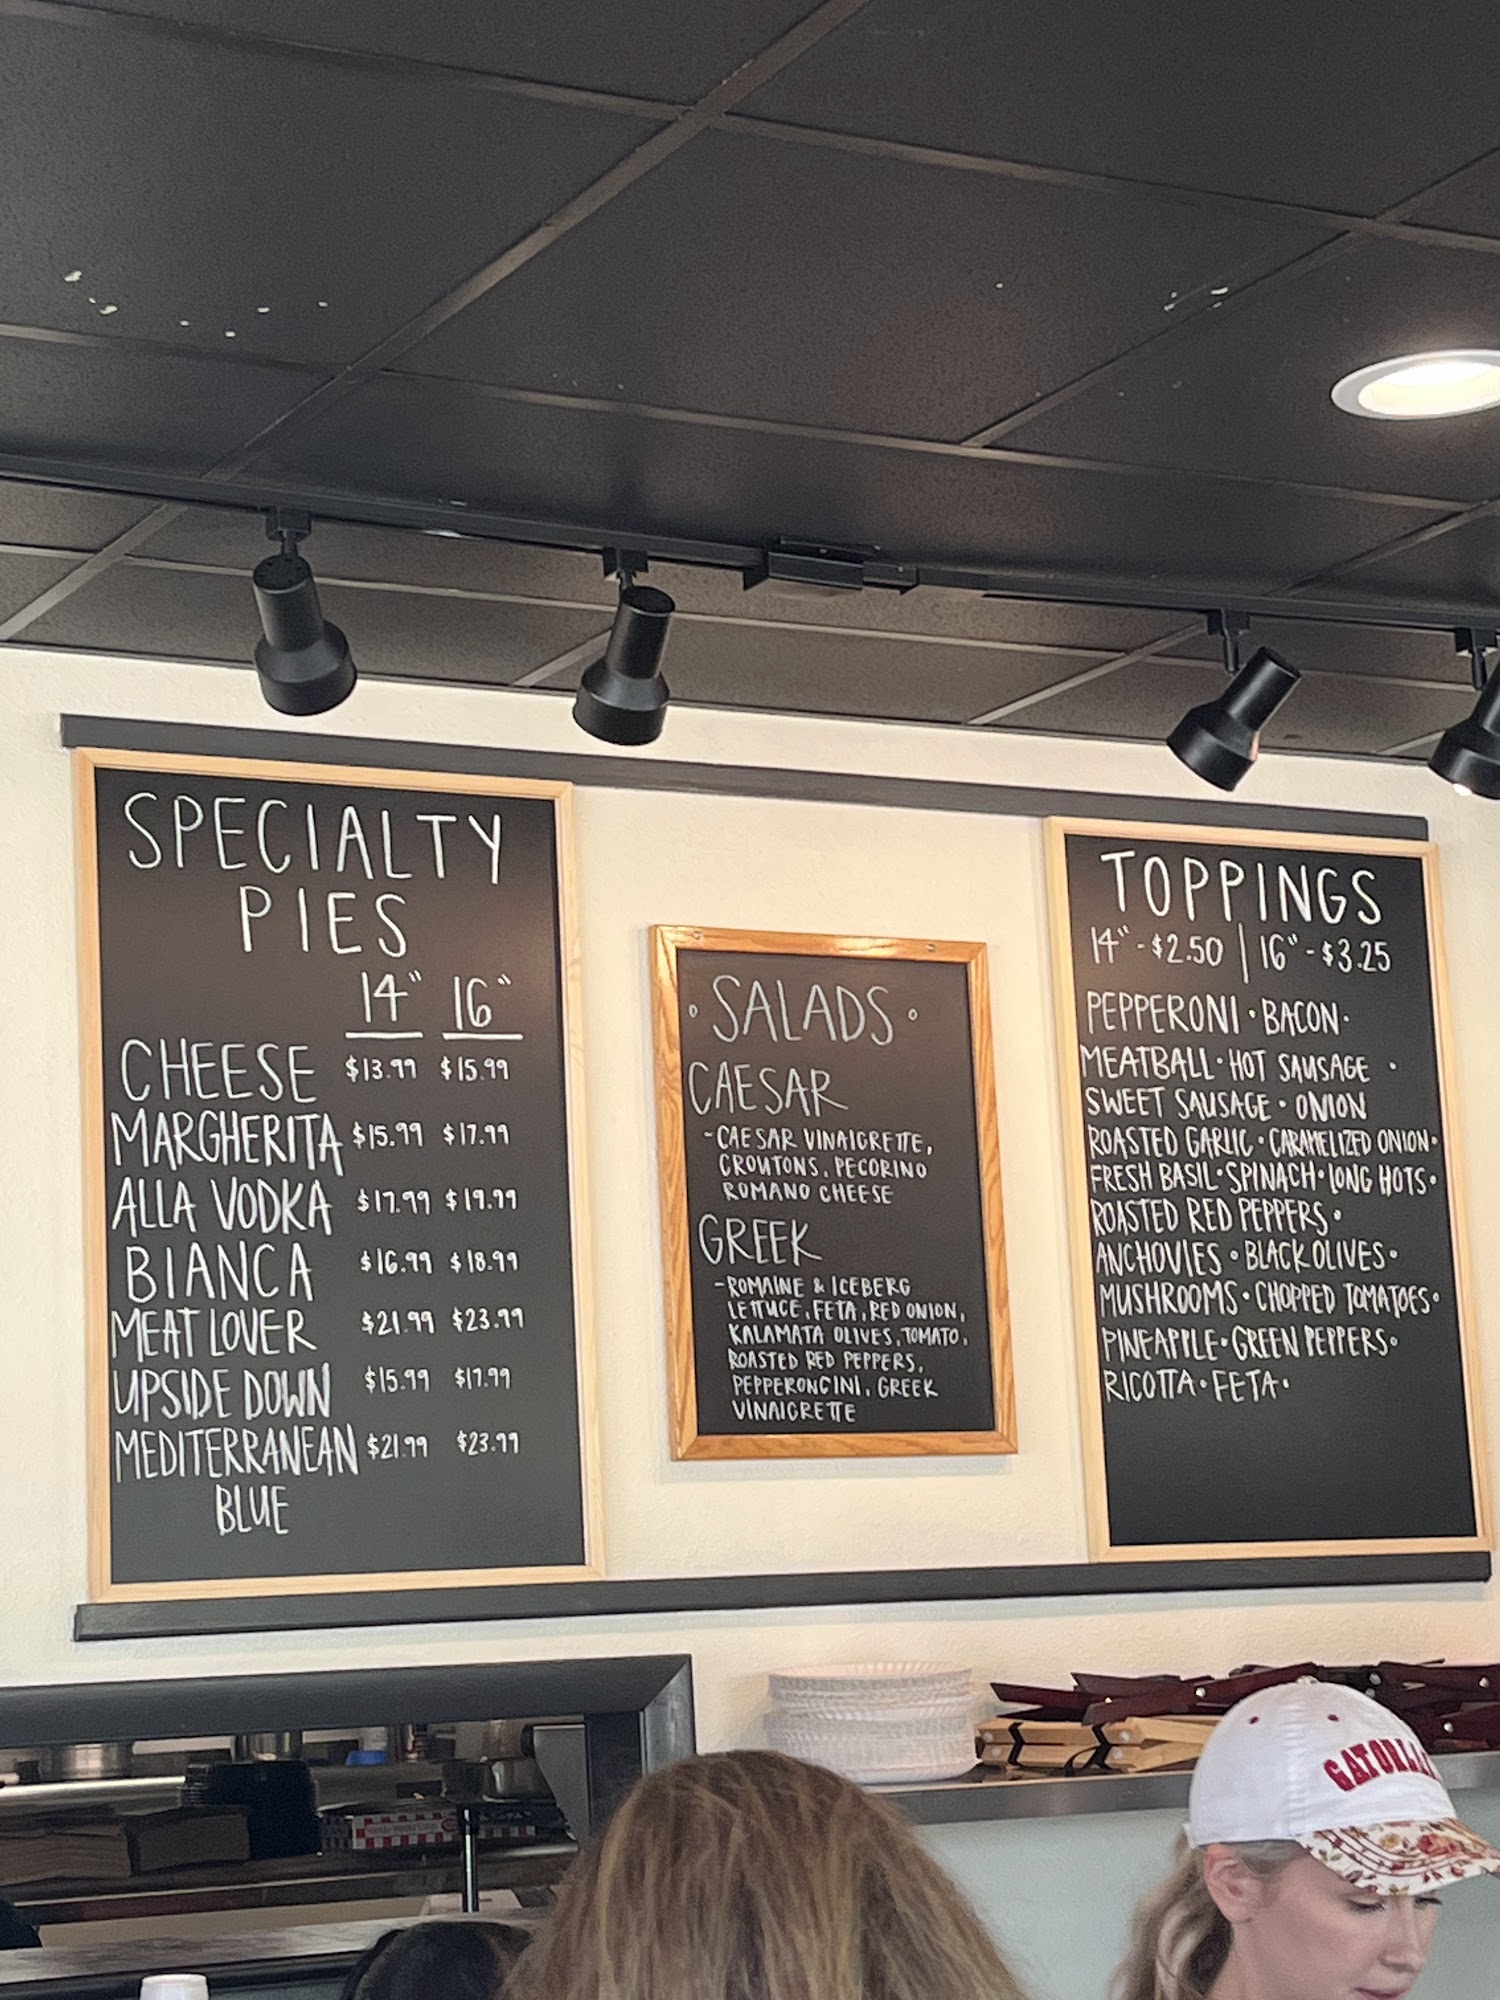 SPECIALTY
PIES
14" 16"
CHEESE $13.99 $15.99
MARGHERITA $15.99 $17.99
ALLA VODKA $17.99 $19.99
BIANCA $16.99 $18.99
MEAT LOVER $21.99 $23.99
UPSIDE DOWN $15.99 $17.99
MEDITERRANEAN $21.99 $23.99
BLUE
SALADS
CAESAR
-CAESAR VINAIGRETTE,
CROUTONS, PECORINO
ROMANO CHEESE
GREEK
-ROMAINE & ICEBERG
LETTUCE, FETA, RED ONION,
KALAMATA OLIVES, TOMATO,
ROASTED RED PEPPERS,
PEPPERONCINI, GREEK
VINAIGRETTE
TOPPINGS
14"-$2.50 | 16"-$3.25
PEPPERONI • BACON •
MEATBALL • HOT SAUSAGE •
SWEET SAUSAGE • ONION
ROASTED GARLIC • CARAMELIZED ONION •
FRESH BASIL • SPINACH • LONG HOTS •
ROASTED RED PEPPERS •
ANCHOVIES • BLACK OLIVES •
MUSHROOMS • CHOPPED TOMATOES •
PINEAPPLE • GREEN PEPPERS •
RICOTTA • FETA •